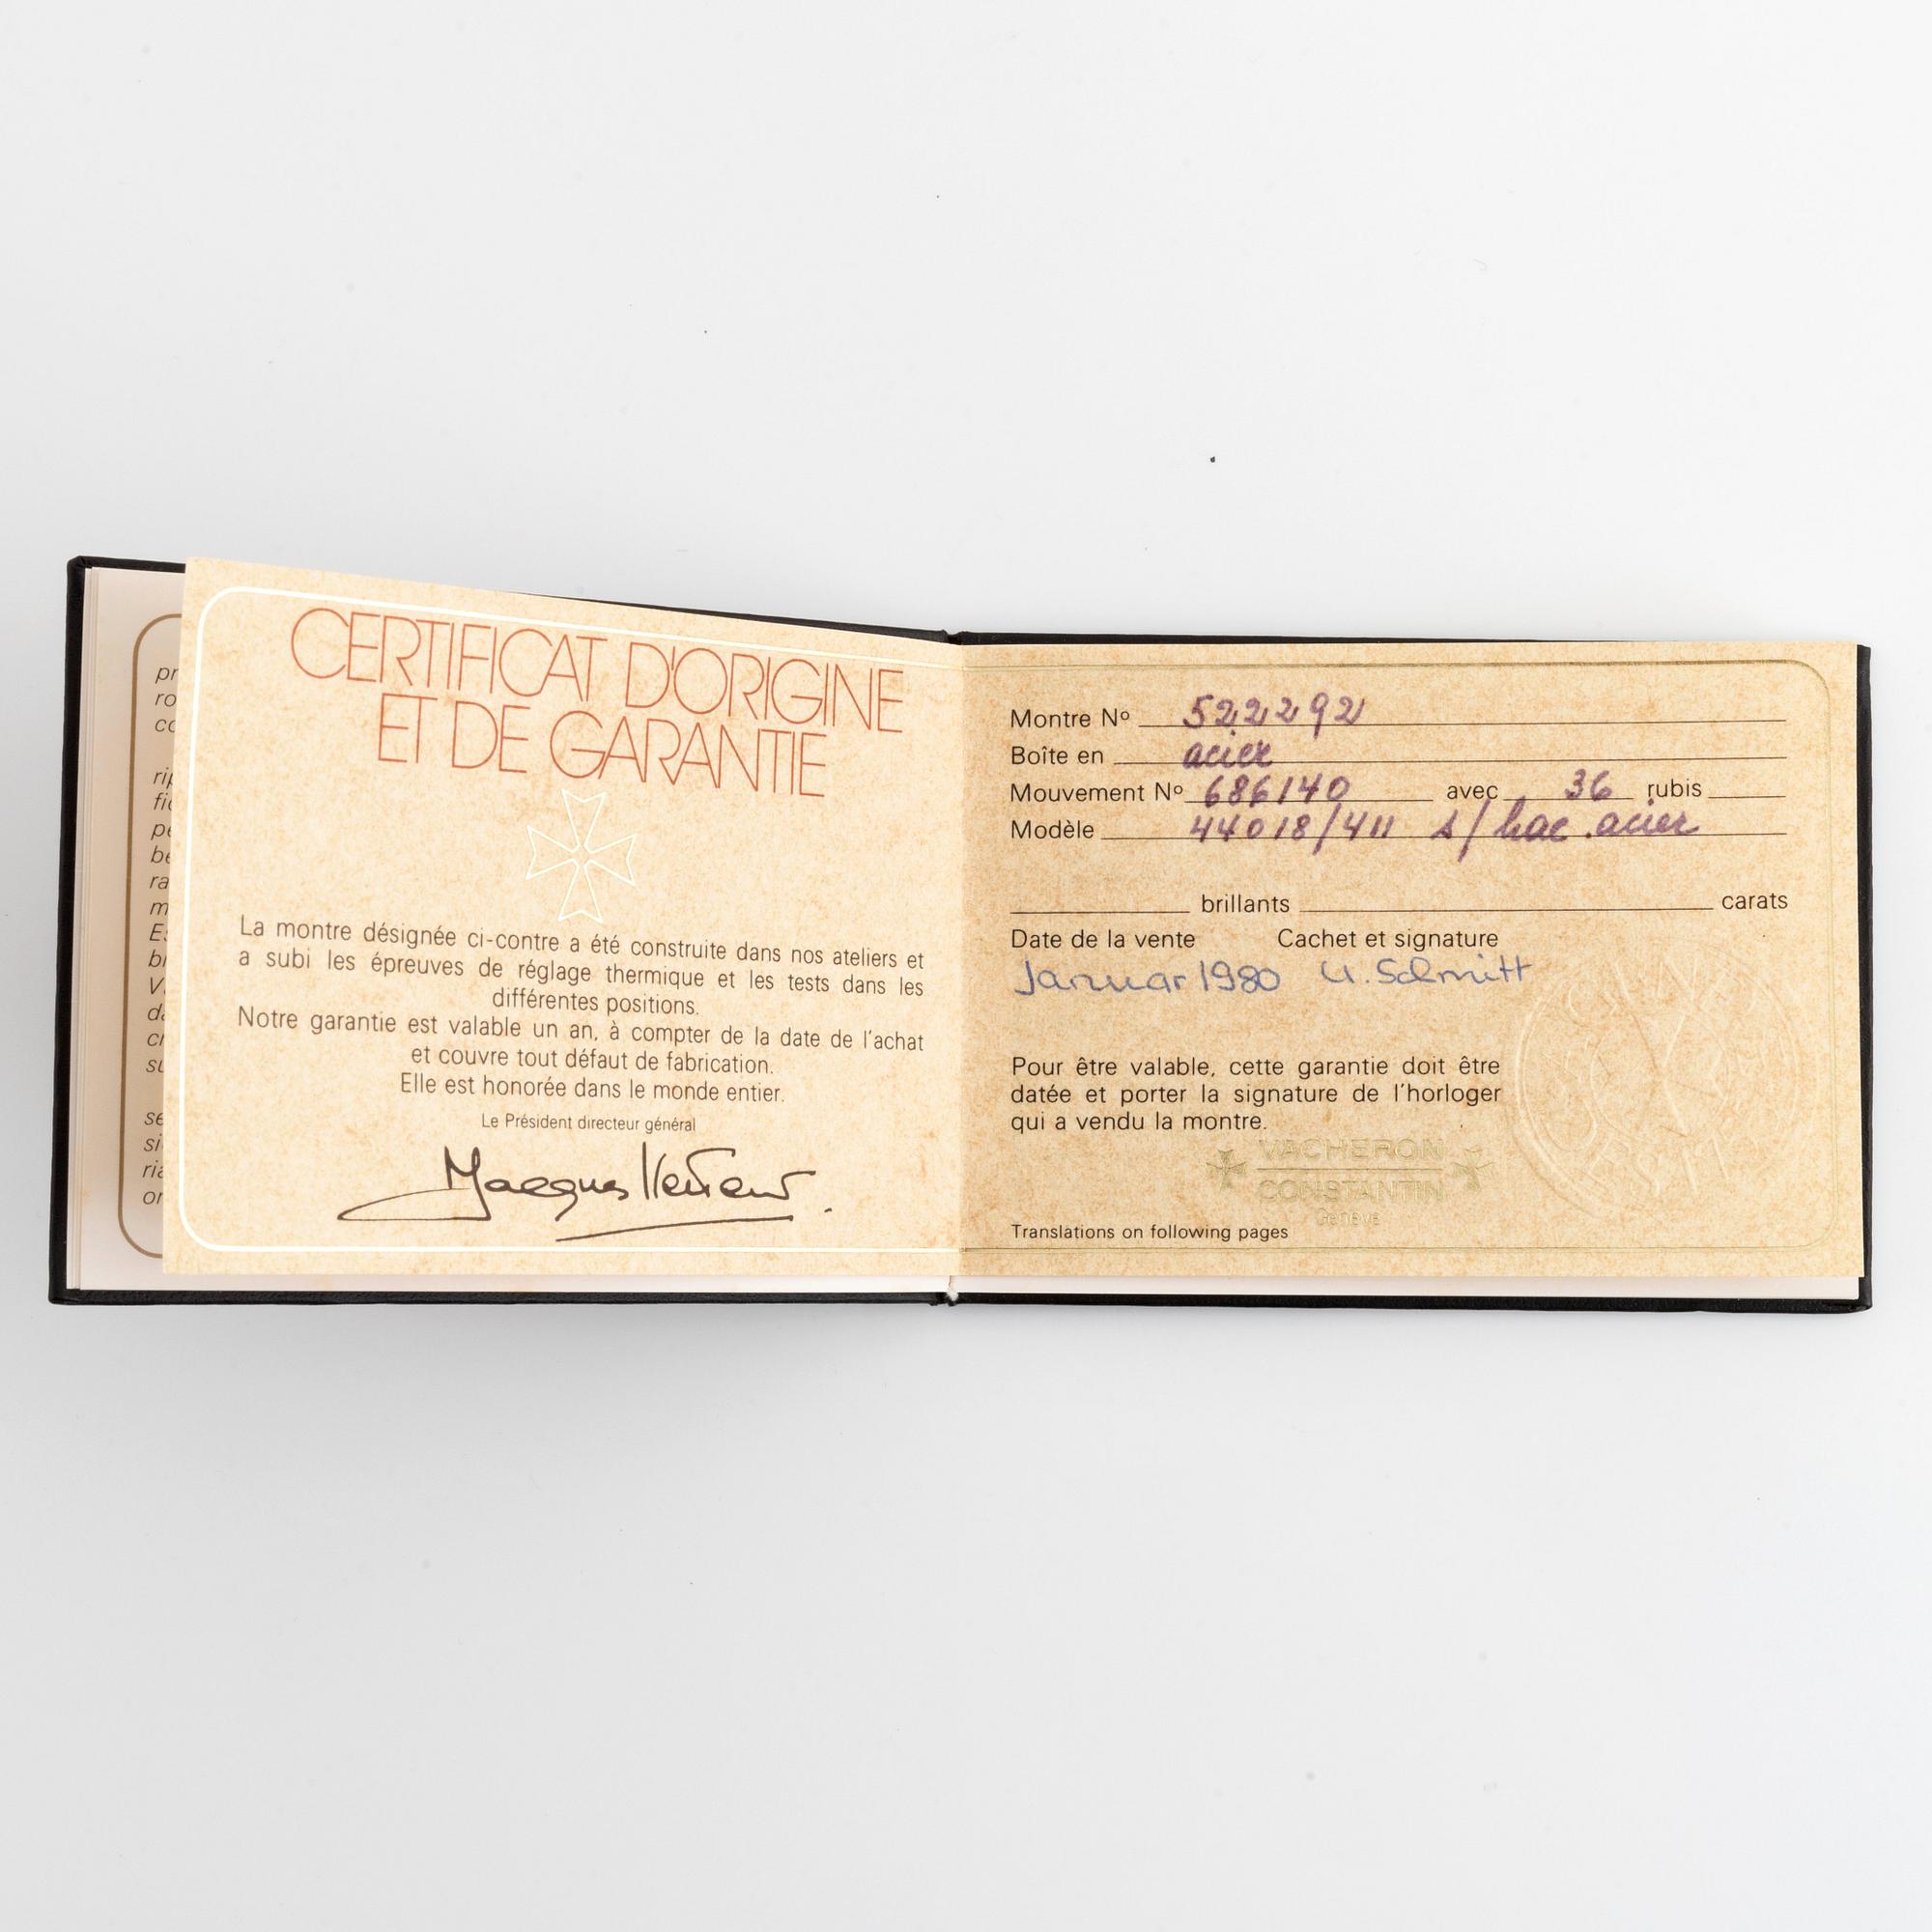 CERTIFICAT D'ORIGINE
ET DE GARANTIE
La montre désignée ci-contre a été construite dans nos ateliers et
a subi les épreuves de réglage thermique et les tests dans les
différentes positions.
Notre garantie est valable un an, à compter de la date de l'achat
et couvre tout défaut de fabrication.
Elle est honorée dans le monde entier.
Le Président directeur général
Jacques
Montre Nº 522292
Boîte en acier
Mouvement Nº 686140 avec 36 rubis
Modèle 44018/411 s/ brac. acier
brillants carats
Date de la vente Cachet et signature
Januar 1980 U. Schmitt
Pour être valable, cette garantie doit être
datée et porter la signature de l'horloger
qui a vendu la montre.
VACHERON
CONSTANTIN
Genève
Translations on following pages